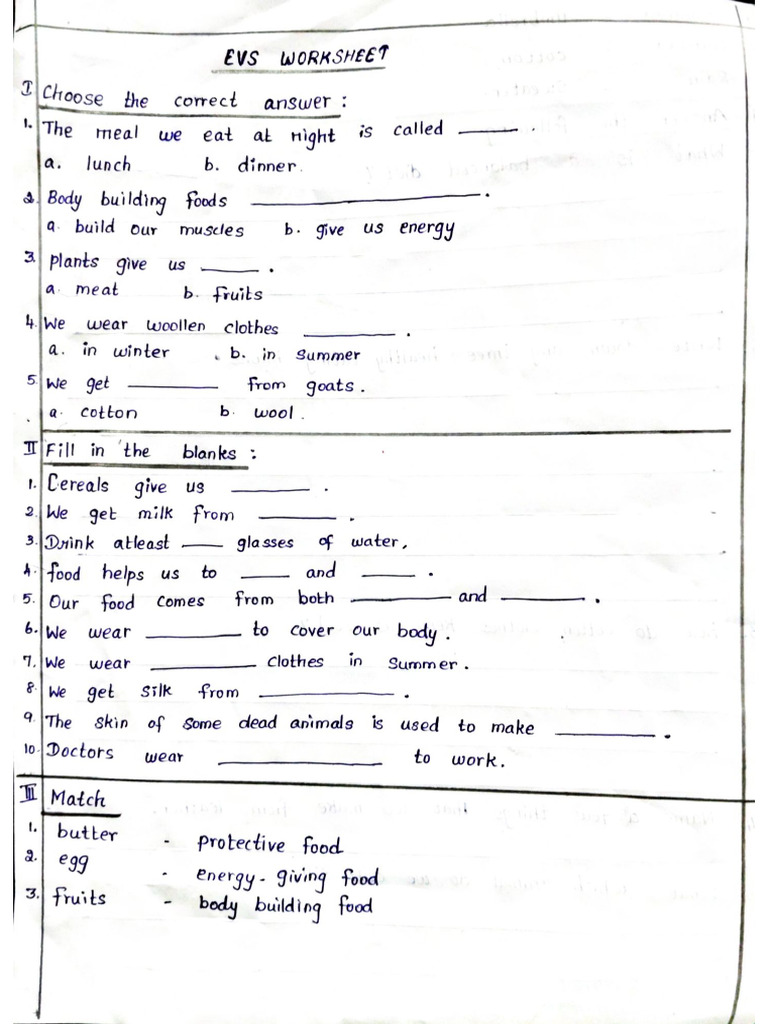 EVS WORKSHEET
I Choose the correct answer :
1. The meal we eat at night is called ______ .
a. lunch b. dinner.
2. Body building foods ______ .
a. build our muscles b. give us energy
3. plants give us ______ .
a. meat b. fruits
4. We wear woollen clothes ______ .
a. in winter . b. in summer
5. We get ______ from goats.
a. cotton b. wool.
II Fill in the blanks :
1. Cereals give us ______ .
2. We get milk from ______ .
3. Drink atleast ____ glasses of water.
4. food helps us to ____ and ____ .
5. Our food comes from both ______ and ______ .
6. We wear ______ to cover our body.
7. We wear ______ clothes in summer.
8. We get silk from ______ .
9. The skin of some dead animals is used to make ______ .
10. Doctors wear ______ to work.
III Match
1. butter - protective food
2. egg - energy-giving food
3. fruits - body building food